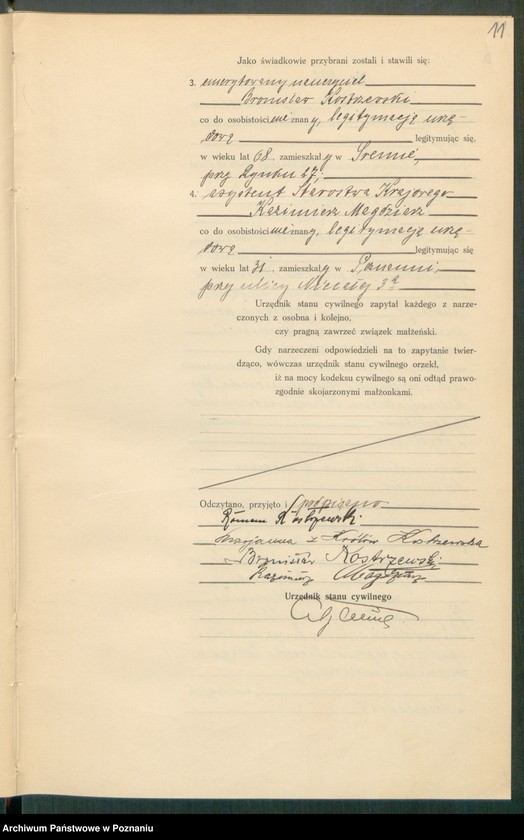 11
Jako świadkowie przybrani zostali i stawili się:
3. emerytowany nauczyciel
Bronisław Kostrzewski
co do osobistości nie znany, legitymacją urzę-
dową legitymując się,
w wieku lat 68, zamieszkały w Śremie,
przy Rynku 17;
4. asystent Starostwa Krajowego
Kazimierz Magdziarz
co do osobistości nieznany, legitymacją urzę-
dową legitymując się
w wieku lat 31, zamieszkały w Poznaniu,
przy ulicy 3a
Urzędnik stanu cywilnego zapytał każdego z narze-
czonych z osobna i kolejno,
czy pragną zawrzeć związek małżeński.
Gdy narzeczeni odpowiedzieli na to zapytanie twier-
dząco, wówczas urzędnik stanu cywilnego orzekł,
iż na mocy kodeksu cywilnego są oni odtąd prawo-
zgodnie skojarzonymi małżonkami.
Odczytano, przyjęto i podpisano
Roman Kostrzewski
Marjanna z Królów Kostrzewska
Bronisław Kostrzewski
Kazimierz Magdziarz
Urzędnik stanu cywilnego
Archiwum Państwowe w Poznaniu